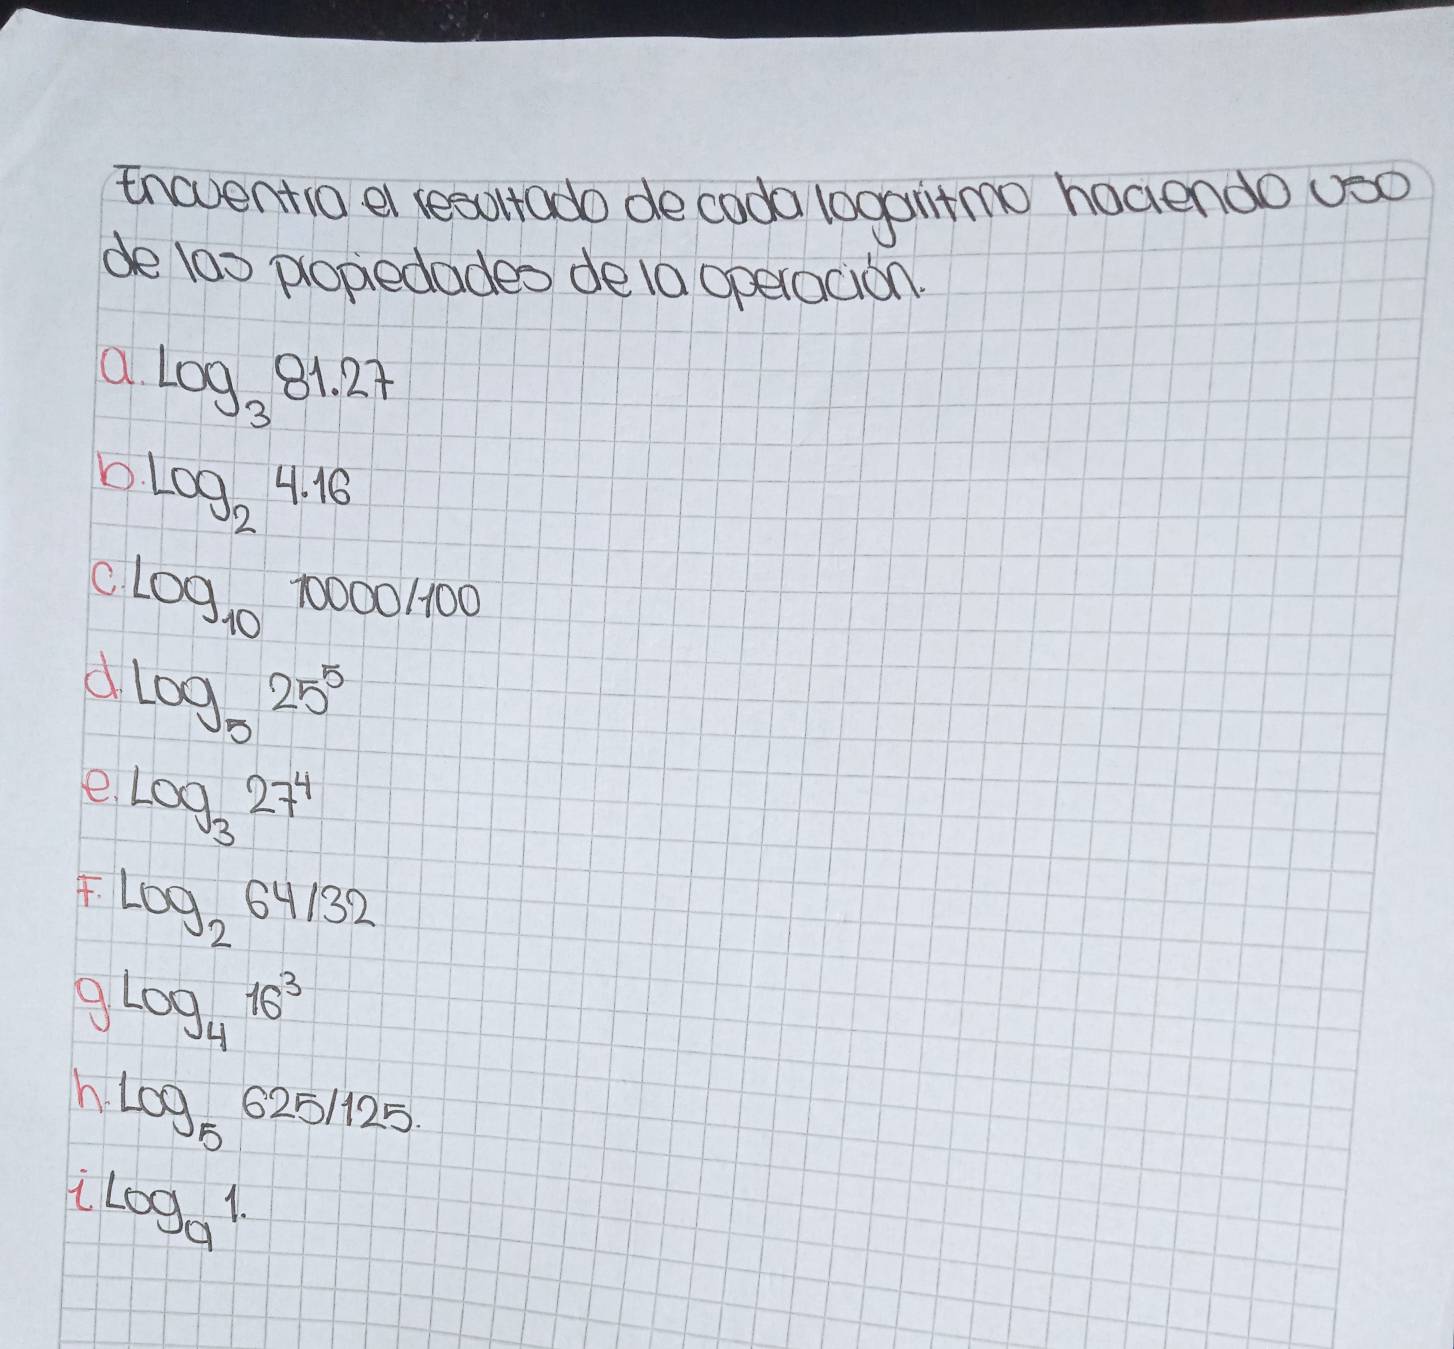 Encuentra el resultado de cada logaritmo haciendo uso
de las propiedades de la operación.
a. Log₃ 81.27
b. Log₂ 4.16
c. Log₁₀ 10000/100
d. Log₅ 25⁵
e. Log₃ 27⁴
F. Log₂ 64/32
g. Log₄ 16³
h. Log₅ 625/125.
i. Log₉ 1.